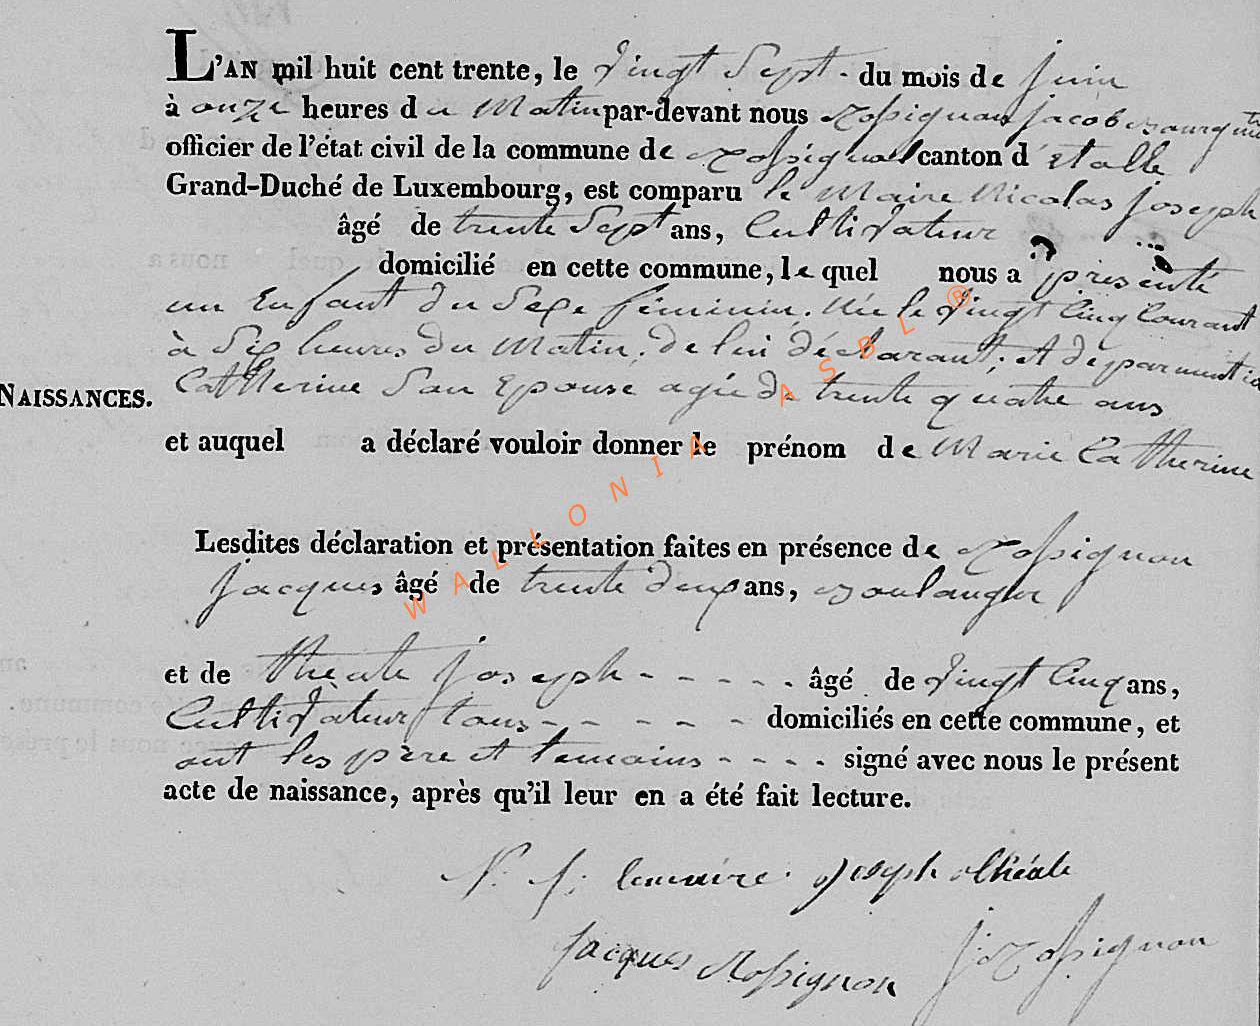 L'AN mil huit cent trente, le vingt Sept - du mois de juin
à onze heures du Matin par-devant nous Rossignon Jacob Bourgm
officier de l'état civil de la commune de canton d'Etalle
Grand-Duché de Luxembourg, est comparu le Maire Nicolas Joseph
âgé de trente Sept ans, Cultivateur
domicilié en cette commune, le quel nous a présenté
un Enfant du Sexe féminin. Née le vingt Cinq Courant
à Six heures du Matin. de lui déclarant, et de
Catherine Son Epouse agée de trente quatre ans
NAISSANCES.
et auquel a déclaré vouloir donner le prénom de Marie Catherine
Lesdites déclaration et présentation faites en présence de Rossignon
Jacques âgé de trente deux ans, Boulanger
et de théate Joseph - - - - - âgé de vingt Cinq ans,
Cultivateur tous - - - - - domiciliés en cette commune, et
ont les père et temoins - - - - signé avec nous le présent
acte de naissance, après qu'il leur en a été fait lecture.
N. J. lemaire. Joseph théate
Jacques Rossignon J. Rossignon
WALLONIA ASBL ®